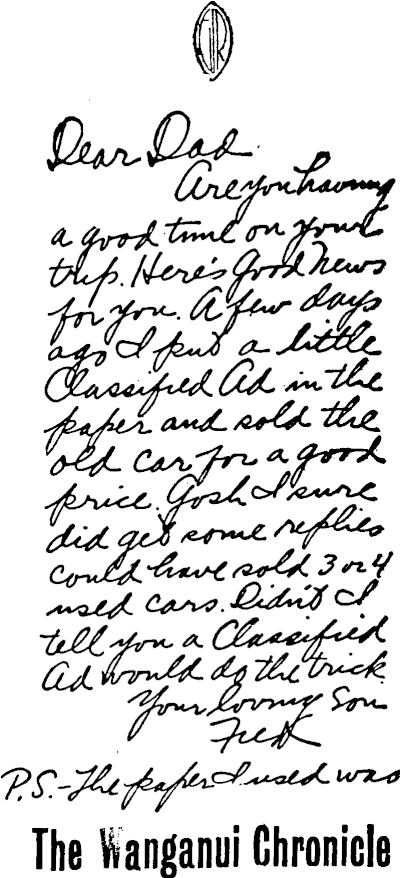 Dear Dad
Are you having
a good time on your
trip. Here's Good News
for you. A few days
ago I put a little
Classified Ad in the
paper and sold the
old car for a good
price. Gosh I sure
did get some replies
could have sold 3 or 4
used cars. Didn't I
tell you a Classified
Ad would do the trick
Your loving Son
P.S.-The paper I used was
The Wanganui Chronicle